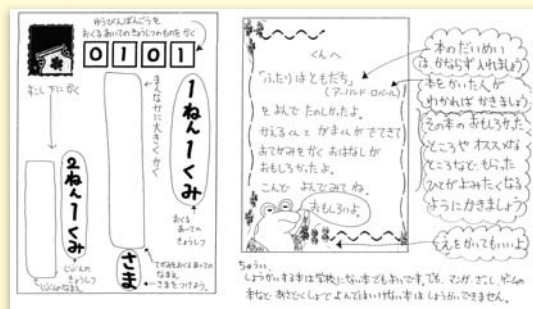 ゆうびんばんごうを
おくるあいての きょうしつのものを かく
0101
すこし下にかく
まんなかに大きくかく
1ねん1くみ
おくる
あいての
きょうしつ
2ねん1くみ
じぶんの
きょうしつ
じぶんのなまえ
さま
てがみをおくるあいての
なまえ
さまをつけよう。
くんへ
「ふたりはともだち」
(アーノルド・ローベル)
をよんで たのしかったよ。
かえるくんと がまくんが でてきて
おてがみをかく おはなしが
おもしろかったよ。
こんど よんでみてね。
おもしろいよ。
本のだいめい
は、かならず 入れましょう
本をかいた人が
わかれば かきましょう
その本の おもしろかった
ところや オススメな
ところなど、もらった
ひとが よみたくなる
ように かきましょう
えをかいてもいいよ
ちゅうい
しょうかいする本は学校にない本でもよいです。でも、マンガ・ざっし、ゲームの
本など あさどくしょで よんではいけない本は しょうかいできません。